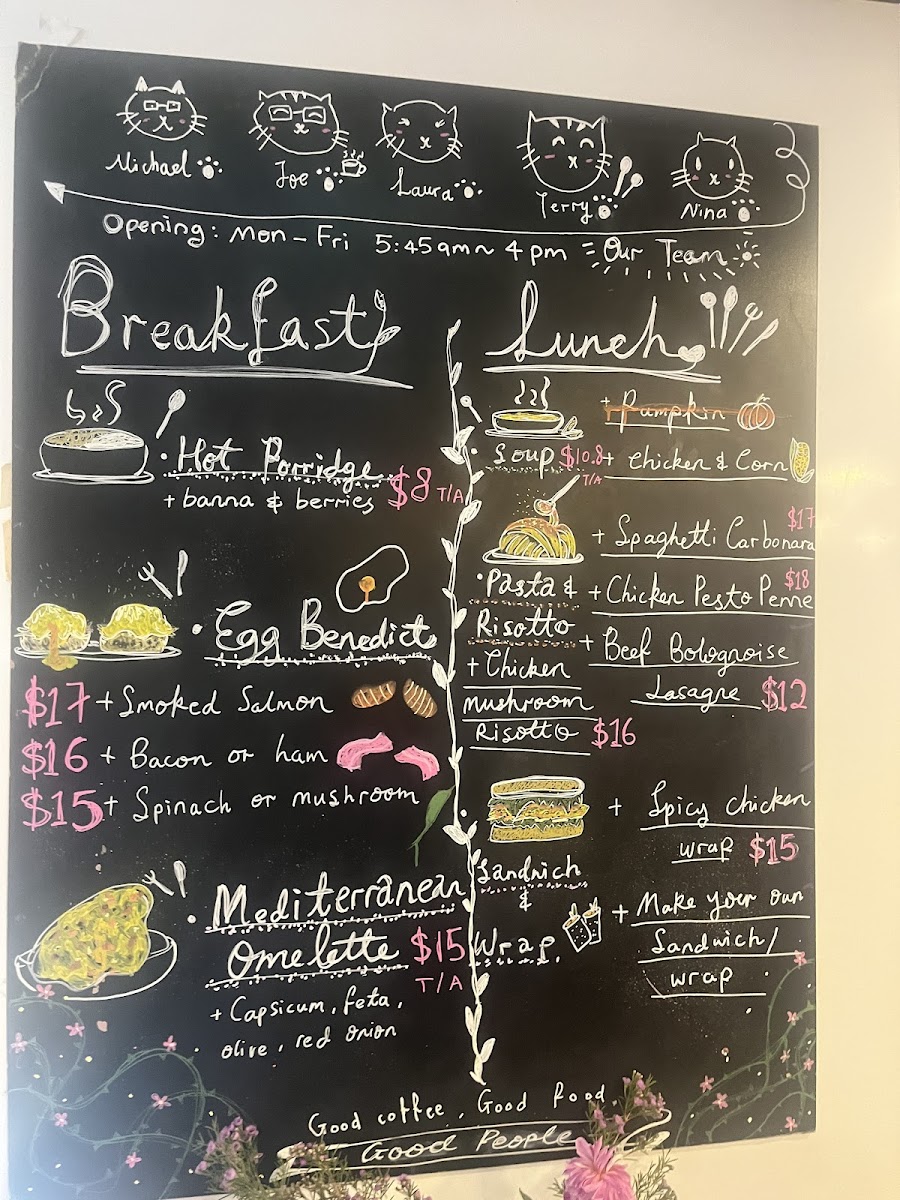 Michael
Joe
Laura
Terry
Nina
Opening: Mon - Fri 5:45am ~ 4 pm
Our Team
Breakfast
Hot Porridge
+ banna & berries $8 T/A
Egg Benedict
$17 + Smoked Salmon
$16 + Bacon or ham
$15 + Spinach or mushroom
Mediterranean
Omelette $15
T/A
+ Capsicum, feta,
olive, red onion
Lunch
+ Pumpkin
Soup $10.8 + Chicken & Corn
T/A
$17
+ Spaghetti Carbonara
Pasta &
Risotto
+ Chicken
mushroom
Risotto $16
$18
+ Chicken Pesto Penne
+ Beef Bolognoise
Lasagne $12
Sandwich
&
Wrap.
+ Spicy chicken
wrap $15
+ Make your own
Sandwich/
wrap
Good coffee, Good food
Good People